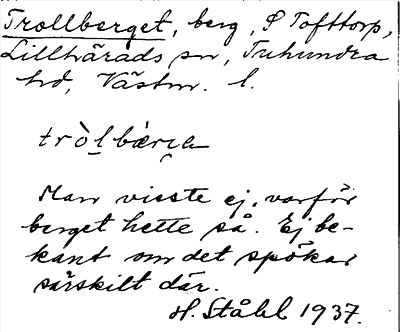 Trollberget, berg, S Tofttorp,
Lillhärads sn, Tuhundra
hd, Västm. l.
tròlbær
Man visste ej, varför
berget hette så. Ej be-
kant om det spökar
särskilt där.
H. Ståhl 1937.